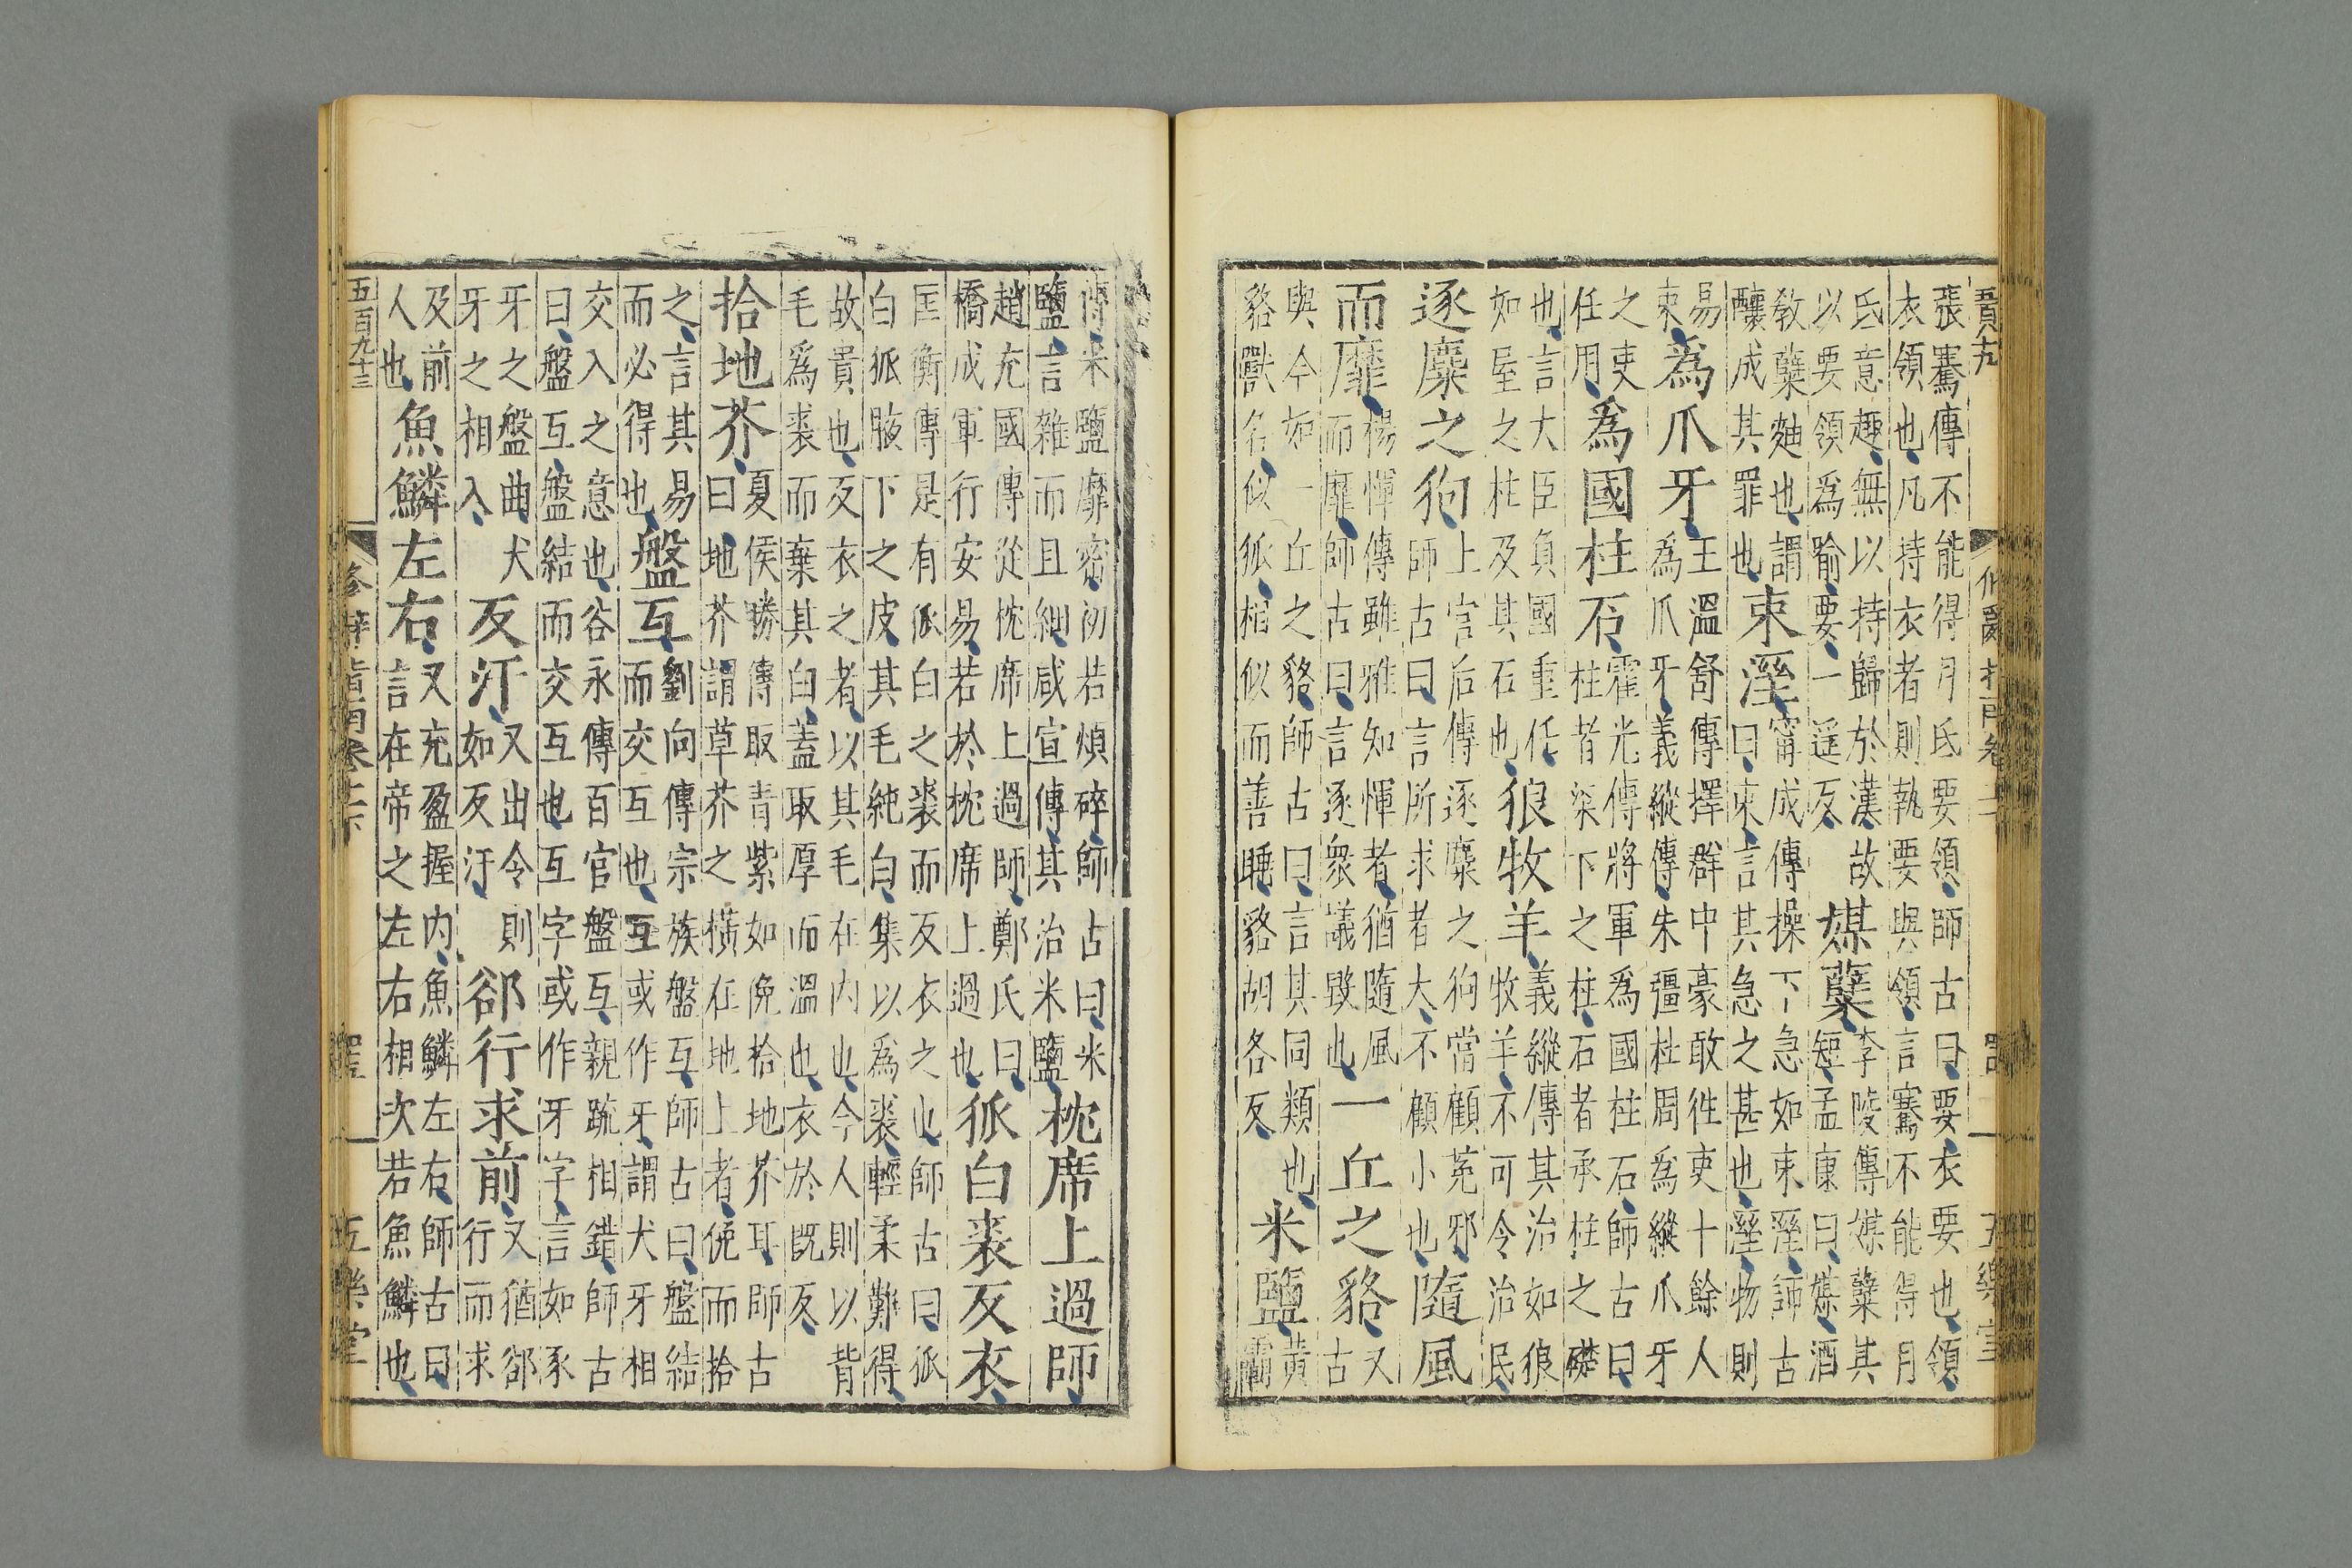 張騫傳不能得月氏要領師古曰要衣要也領
衣領也凡持衣者則執要與領言騫不能得月
氏意趣無以持歸於漢故
以要領為喻要一遥反
媒蘗
李陵傳媒蘗其
短孟康曰媒酒
教蘗麯也謂
釀成其罪也
束溼
甯成傳操下急如束溼師古
曰束言其急之甚也溼物則
易
束
為爪牙
王溫舒傳擇群中豪敢徃吏十餘人
為爪牙義縱傳朱彊杜周為縱爪牙
之吏
任用
為國柱石
霍光傳將軍為國柱石師古曰
柱者梁下之柱石者承柱之礎
也言大臣負國重任
如屋之柱及其石也
狼牧羊
義縱傳其治如狼
牧羊不可令治民
逐麋之狗
上官后傳逐麋之狗當顧菟邪
師古曰言所求者大不顧小也
隨風
而靡
楊惲傳雖雅知惲者猶隨風
而靡師古曰言逐衆議毀也
一丘之貉
又
古
與今如一丘之貉師古曰言其同類也
貉獸名似狐相似而善睡貉胡各反
米鹽
黃
霸
傳米鹽靡密初若煩碎師古曰米
鹽言雜而且細咸宣傳其治米鹽
枕席上過師
趙充國傳從枕席上過師鄭氏曰
橋成軍行安易若於枕席上過也
狐白裘反衣
匡衡傳是有狐白之裘而反衣之也師古曰狐
白狐腋下之皮其毛純白集以為裘輕柔難得
故貴也反衣之者以其毛在内也今人則以背
毛為裘而棄其白蓋取厚而溫也衣於旣反
拾地芥
夏侯勝傳取青紫如俛拾地芥耳師古
曰地芥謂草芥之橫在地上者俛而拾
之言其易
而必得也
盤互
劉向傳宗族盤互師古曰盤結
而交互也互或作牙謂犬牙相
交入之意也谷永傳百官盤互親疏相錯師古
曰盤互盤結而交互也互字或作牙字言如豕
牙之盤曲犬
牙之相入
反汗
又出令則
如反汗
郤行求前
又猶郤
行而求
及前
人也
魚鱗左右
又充盈握内魚鱗左右師古曰
言在帝之左右相次若魚鱗也
五百九十三
修辭指南卷
五樂堂